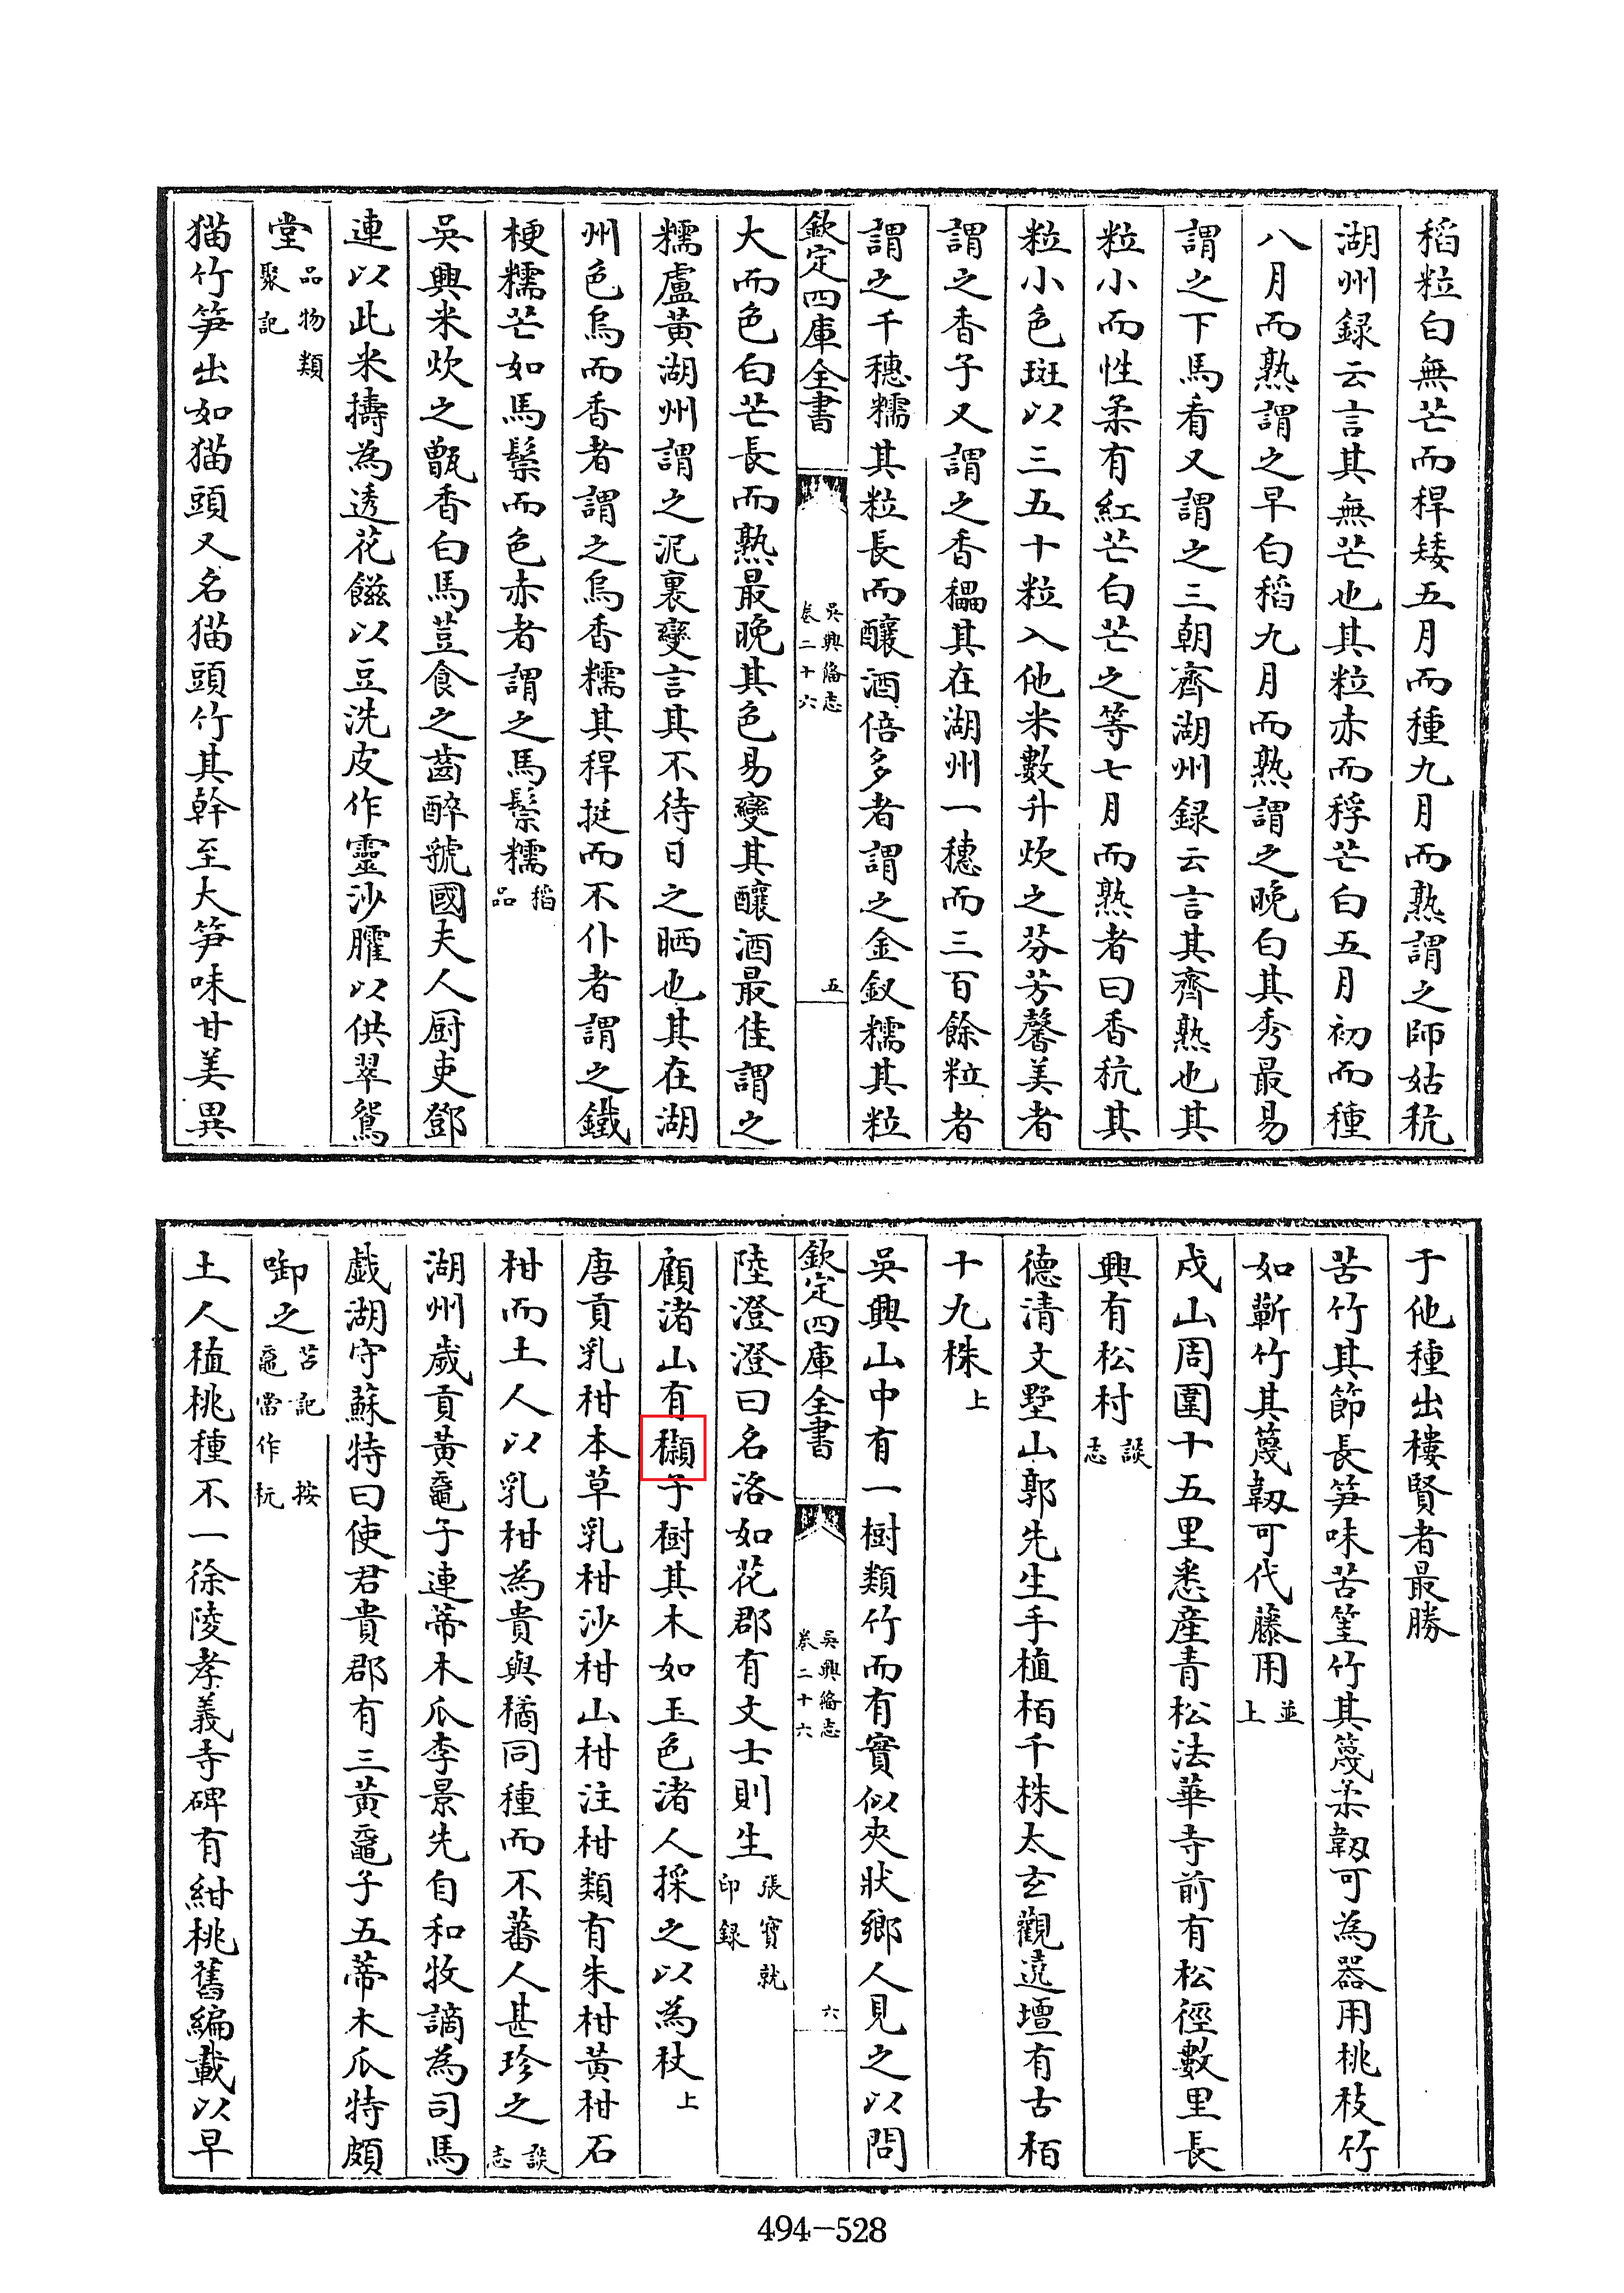 稻粒白無芒而稈矮五月而種九月而熟謂之師姑秔
湖州録云言其無芒也其粒赤而稃芒白五月初而種
八月而熟謂之早白稻九月而熟謂之晚白其秀最易
謂之下馬看又謂之三朝齊湖州録云言其齊熟也其
粒小而性柔有紅芒白芒之等七月而熟者曰香秔其
粒小色斑以三五十粒入他米數升炊之芬芳馨美者
謂之香子又謂之香䆉其在湖州一穗而三百餘粒者
謂之千穗糯其粒長而釀酒倍多者謂之金釵糯其粒
欽定四庫全書
吳興備志
卷二十六
五
大而色白芒長而熟最晚其色易變其釀酒最佳謂之
糯盧黃湖州謂之泥裏變言其不待日之晒也其在湖
州色烏而香者謂之烏香糯其稈挺而不仆者謂之鐵
梗糯芒如馬鬃而色赤者謂之馬鬃糯稻品
吳興米炊之甑香白馬荳食之齒醉虢國夫人厨吏鄧
連以此米擣為透花餈以豆洗皮作靈沙臛以供翠鴛
堂品物類聚記
猫竹笋出如猫頭又名猫頭竹其幹至大笋味甘美異
于他種出棲賢者最勝
苦竹其節長笋味苦筀竹其篾柔韌可為器用桃枝竹
如蘄竹其篾韌可代藤用並上
戍山周圍十五里悉產青松法華寺前有松徑數里長
興有松村談志
德清文墅山郭先生手植栢千株太玄觀遶壇有古栢
十九株上
吳興山中有一樹類竹而有實似夾狀鄉人見之以問
欽定四庫全書
吳興備志
卷二十六
六
陸澄澄曰名洛如花郡有文士則生張寶就印録
顧渚山有子樹其木如玉色渚人採之以為杖上
唐貢乳柑本草乳柑沙柑山柑注柑類有朱柑黃柑石
柑而土人以乳柑為貴與橘同種而不蕃人甚珍之談志
湖州歲貢黃黿子連蒂木瓜李景先自和牧謫為司馬
戯湖守蘇特曰使君貴郡有三黃黿子五蒂木瓜特頗
啣之苕記按黿當作杬
土人植桃種不一徐陵孝義寺碑有紺桃舊編載以早
494-528